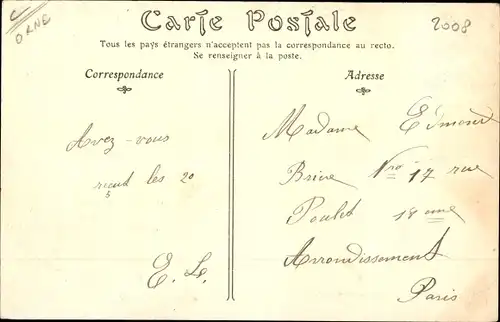 C
ORNE
2008
Carte Postale
Tous les pays étrangers n'acceptent pas la correspondance au recto.
Se renseigner à la poste.
Correspondance
Avez-vous
les 20
E. L.
Adresse
Madame Edmond
Brive Nro 17 rue
Poulet 18 eme
Arrondissement
Paris